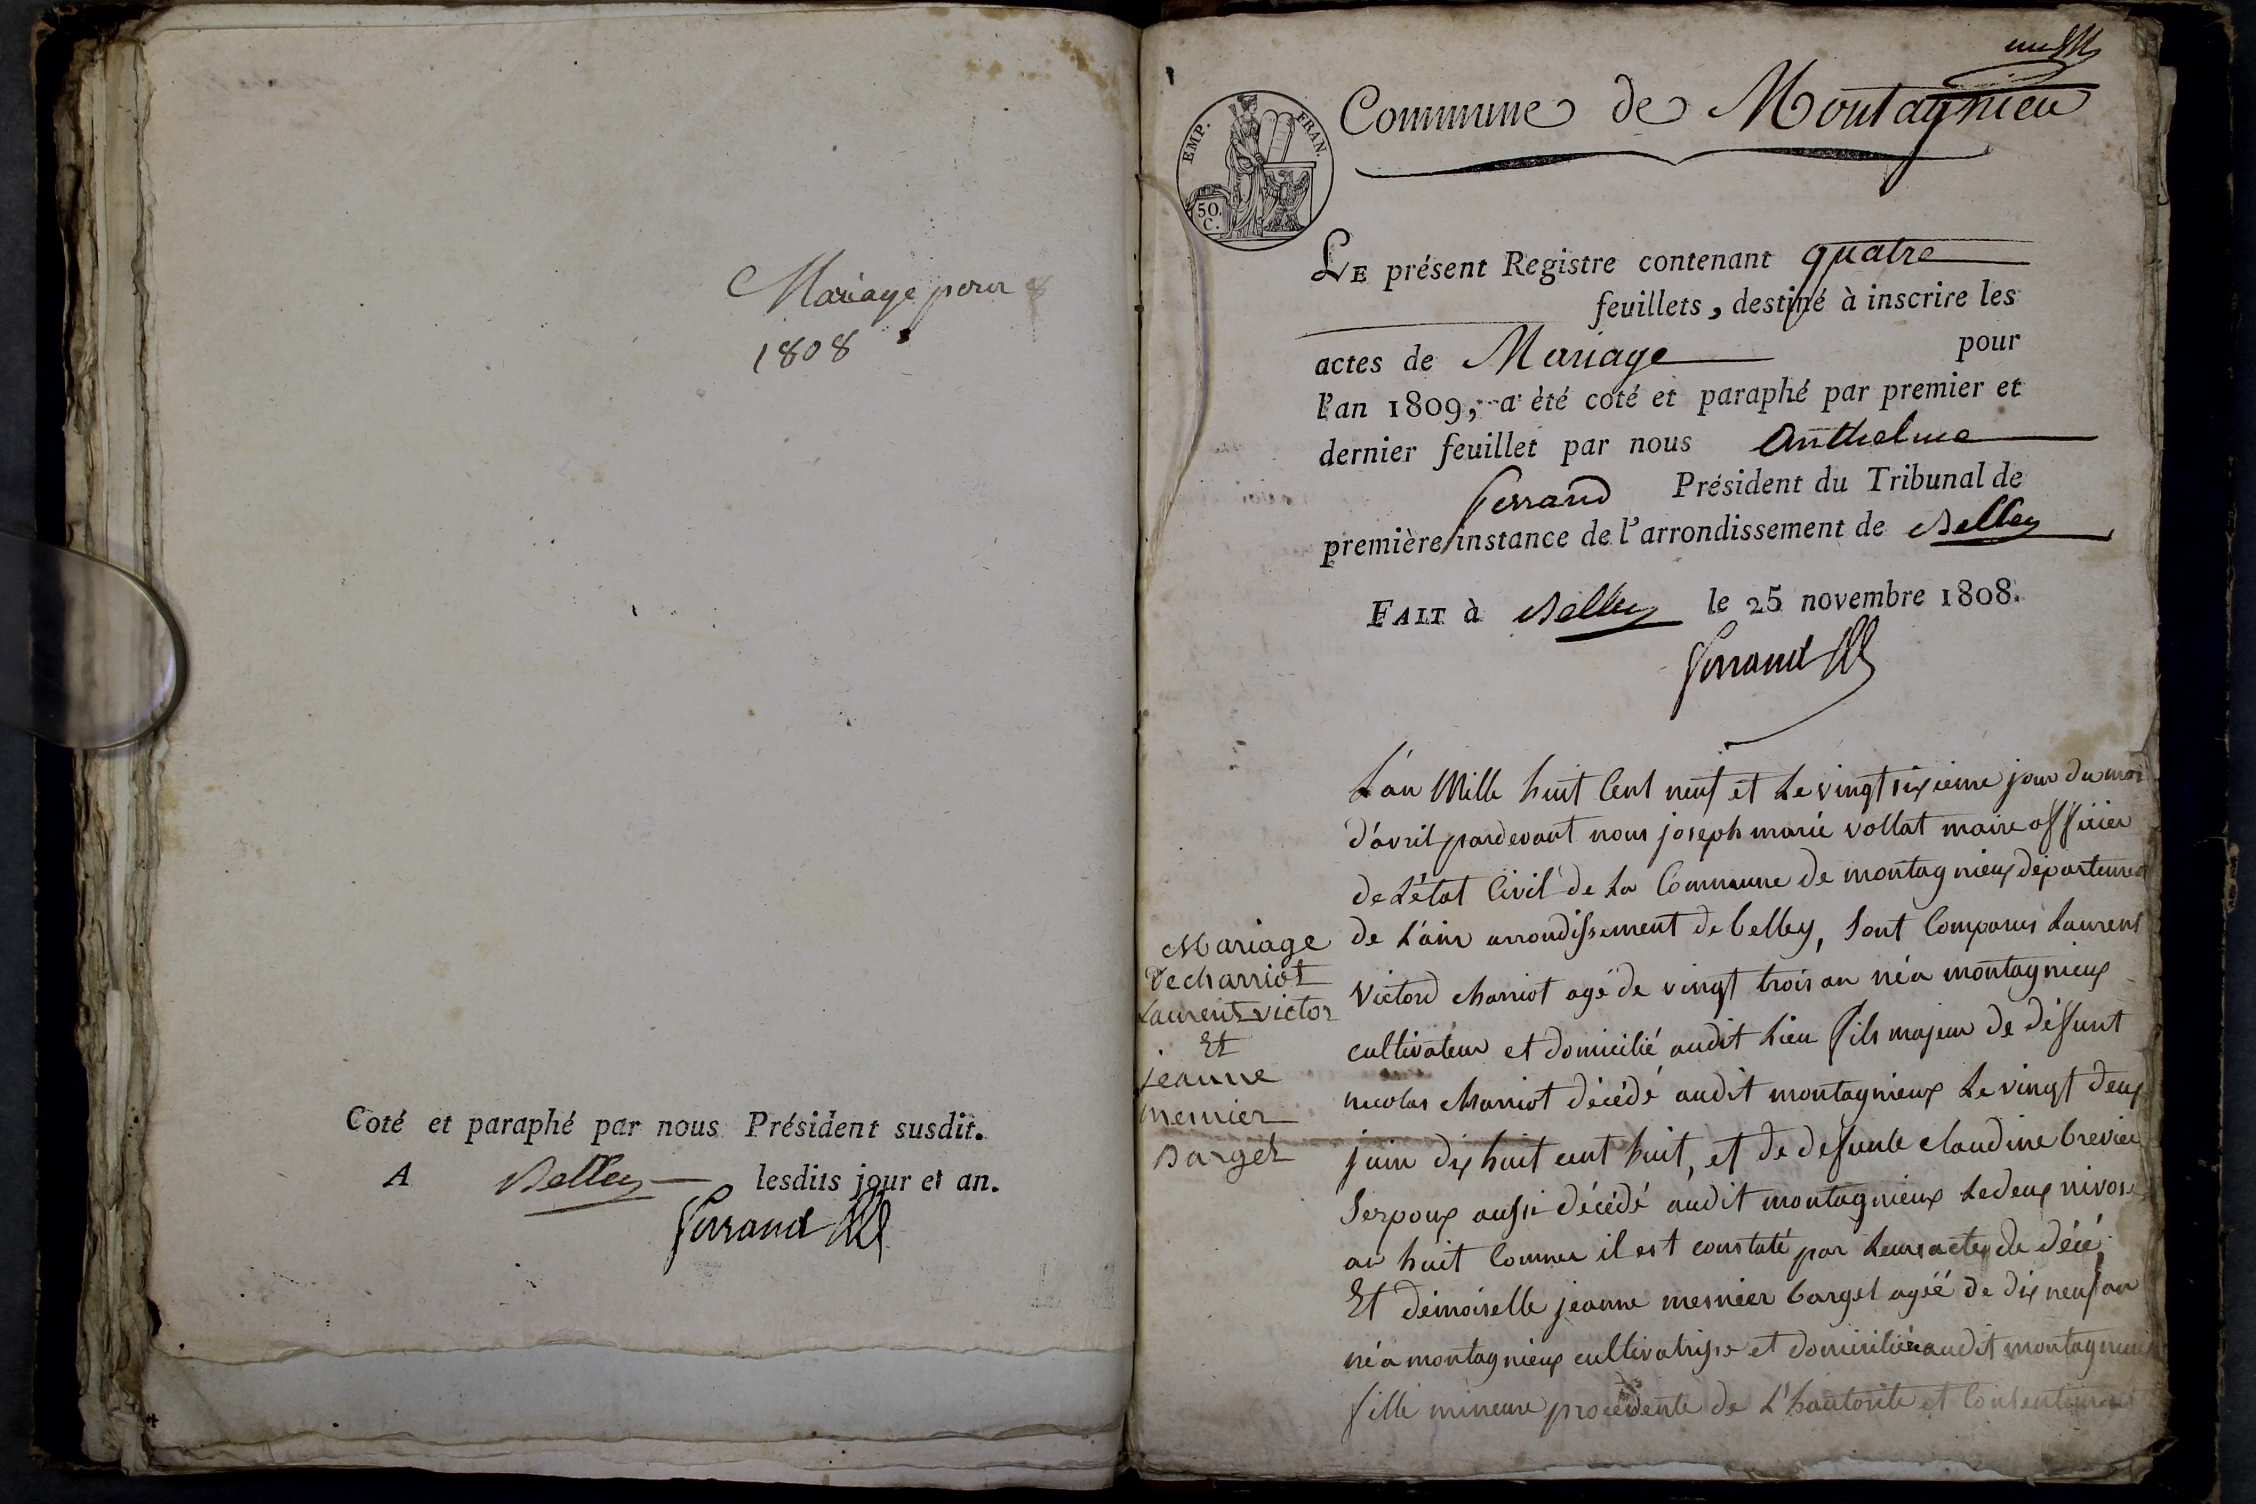 Mariage pour
1808
Coté et paraphé par nous Président susdit.
A Belley lesdits jour et an.
Ferrand
Commune de Montagnieu
EMP. FRAN.
50.
C.
LE présent Registre contenant quatre
feuillets, destiné à inscrire les
actes de Mariage pour
l'an 1809, a été coté et paraphé par premier et
dernier feuillet par nous Anthelme
Ferrand Président du Tribunal de
première instance de l'arrondissement de Belley
FAIT à Belley le 25 novembre 1808.
Ferrand
Mariage
De charriot
Laurent victor
Et
jeanne
mesnier
Barget
L'an Mille huit Cent neuf et Le vingt sixieme jour du mois
d'avril pardevant nous joseph marie vollat maire officier
de L'état Civil de La Commune de montagnieux département
de L'ain arrondissement de belley, sont Comparus Laurent
Victord charriot agé de vingt trois an né a montagnieux
cultivateur et domicilié audit Lieu fils majeur de défunt
nicolas charriot décédé audit montagnieux Le vingt deux
juin dix huit cent huit, et de defunte claudine brevier
Serpoux aussi décédé audit montagnieux Le deux nivose
an huit Comme il est constaté par Leurs actes de décé,
Et demoiselle jeanne mesnier bargel agéé de dix neuf an
né a montagnieux cultivatrisse et domiciliée audit montagnieux
fille mineure procédente de L'hautorite et Consentement